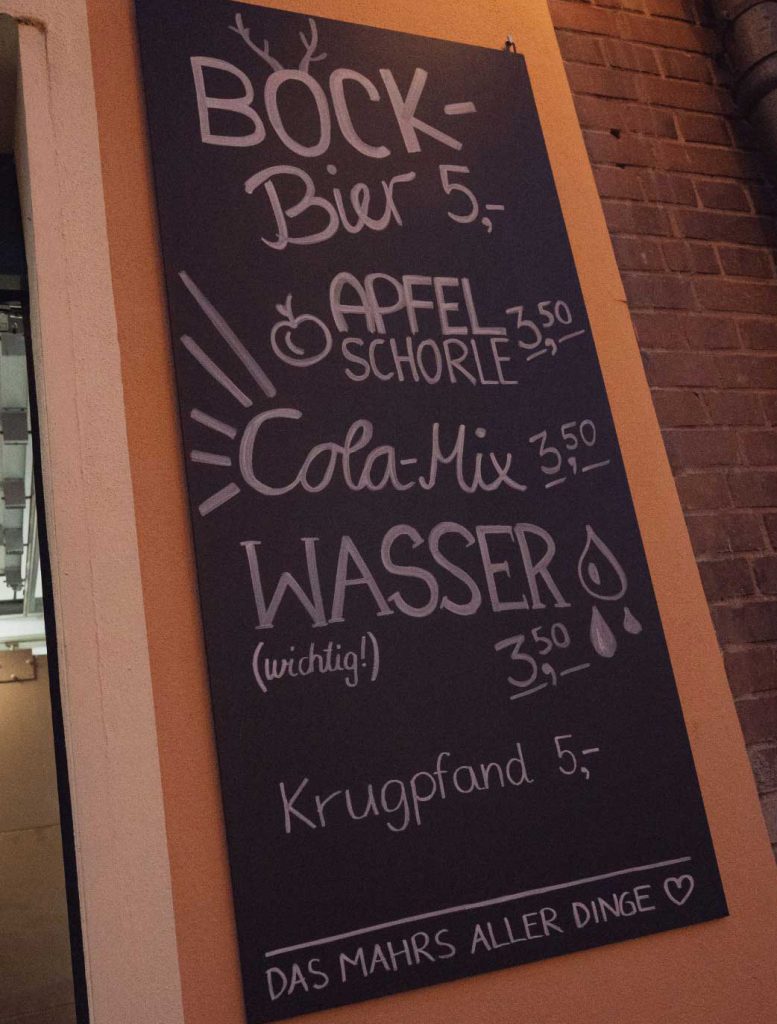 BOCK-
Bier 5,-
APFEL
SCHORLE 3,50
Cola-Mix 3,50
WASSER
(wichtig!) 3,50
Krugpfand 5,-
DAS MAHRS ALLER DINGE ♡